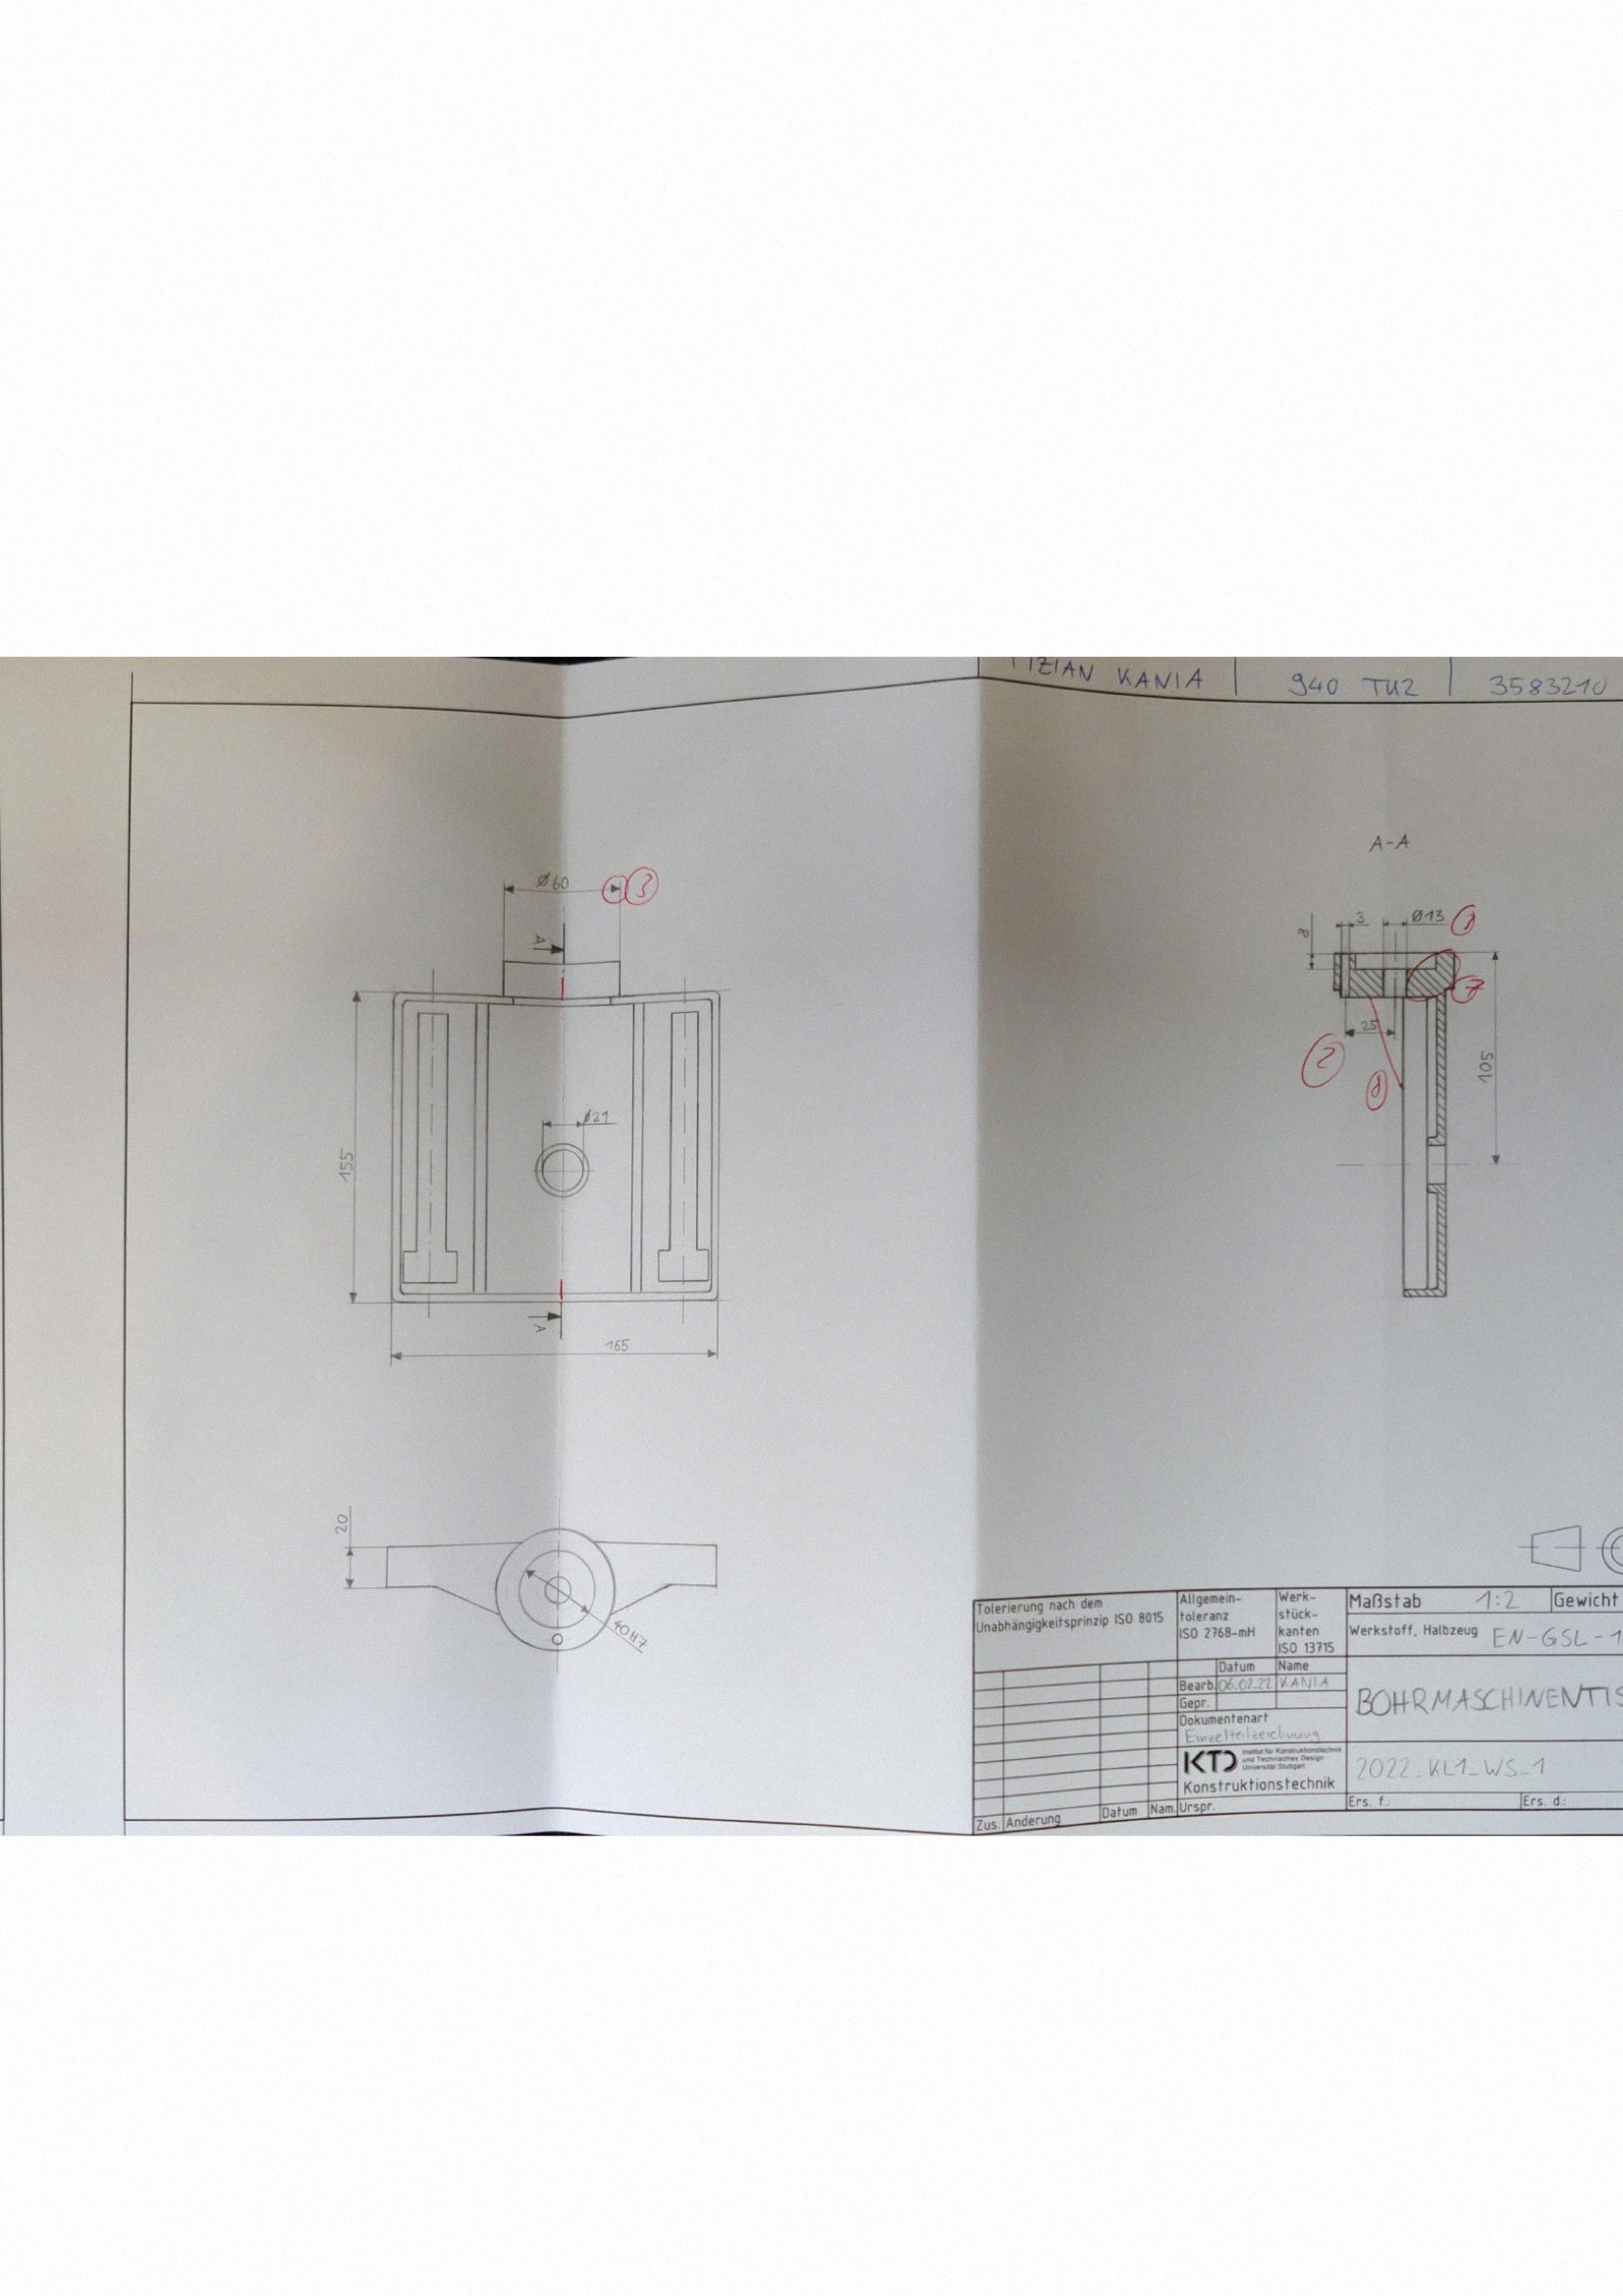 TIZIAN KANIA 940 TU2 3583210
A-A
Ø60 3
A
3 Ø13 1
8
7
25
2
8
105
Ø21
155
A
165
20
40H7
Tolerierung nach dem
Unabhängigkeitsprinzip ISO 8015
Allgemein-
toleranz
ISO 2768-mH
Werk-
stück-
kanten
ISO 13715
Maßstab 1:2 Gewicht
Werkstoff, Halbzeug EN-GSL-1
Datum Name
Bearb. 06.02.22 KANIA
Gepr.
Dokumentenart
Einzelteilzeichnung
BOHRMASCHINENTIS
KTD Institut für Konstruktionstechnik
und Technisches Design
Universität Stuttgart
Konstruktionstechnik
2022_KL1_WS_1
Zus. Änderung Datum Nam. Urspr. Ers. f.: Ers. d.: